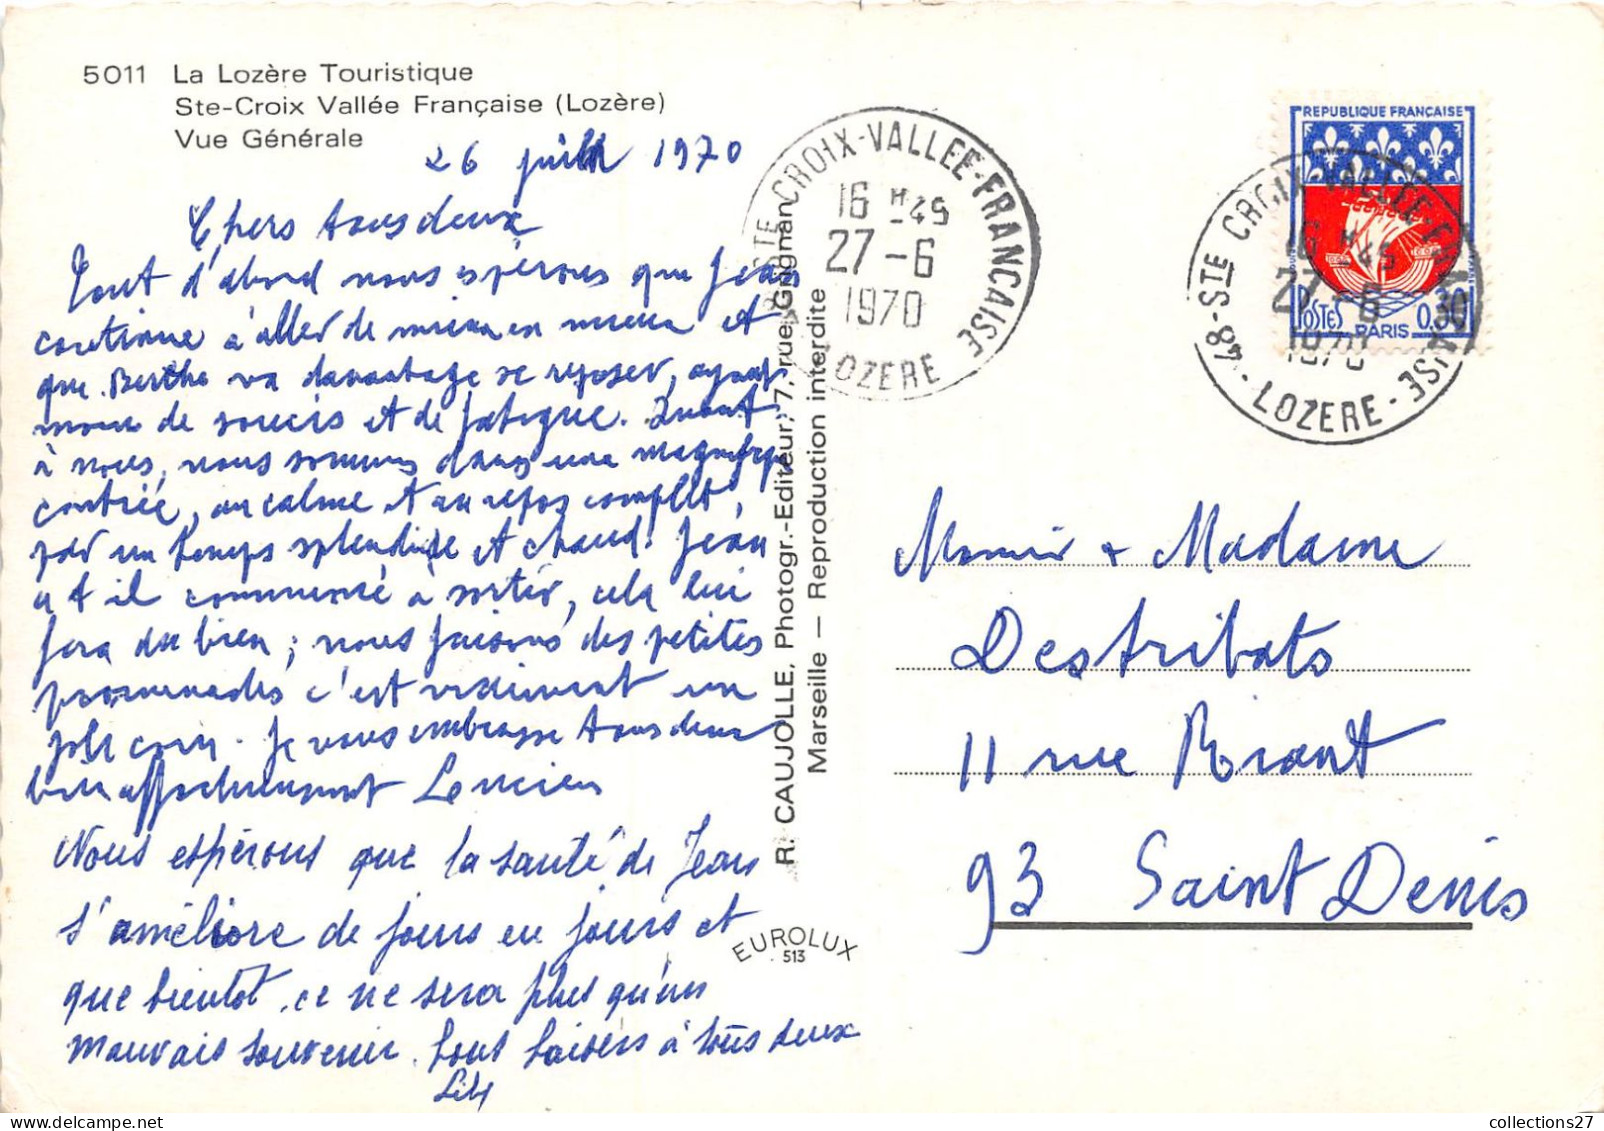 5011 La Lozère Touristique
Ste-Croix Vallée Française (Lozère)
Vue Générale
26 juin 1970
Chers tous deux
Tout d'abord nous espérons que Jean
continue à aller de mieux en mieux et
que Berthe va davantage se reposer, ayant
moins de soucis et de fatigue. Quant
à nous, nous sommes dans une magnifique
contrée, au calme et au repos complet,
par un temps splendide et chaud. Jean
a t il commencé à sortir, cela lui
fera du bien ; nous faisons des petites
promenades c'est vraiment un
joli coin. Je vous embrasse tous deux
bien affectueusement Lucien
Nous espérons que la santé de Jean
s'améliore de jours en jours et
que bientot ce ne sera plus qu'un
mauvais souvenir. bons baisers à tous deux
R. CAUJOLLE, Photogr.-Editeur, 7, rue Grignan
Marseille — Reproduction interdite
EUROLUX
513
STE CROIX-VALLEE-FRANCAISE
16 H 45
27-6
1970
LOZERE
REPUBLIQUE FRANÇAISE
POSTES 0,30
PARIS
48-STE CROIX-VALLEE-FRANCAISE
16 H 45
27-6
1970
LOZERE
Monsieur & Madame
Destribats
11 rue Riant
93 Saint Denis
collections27